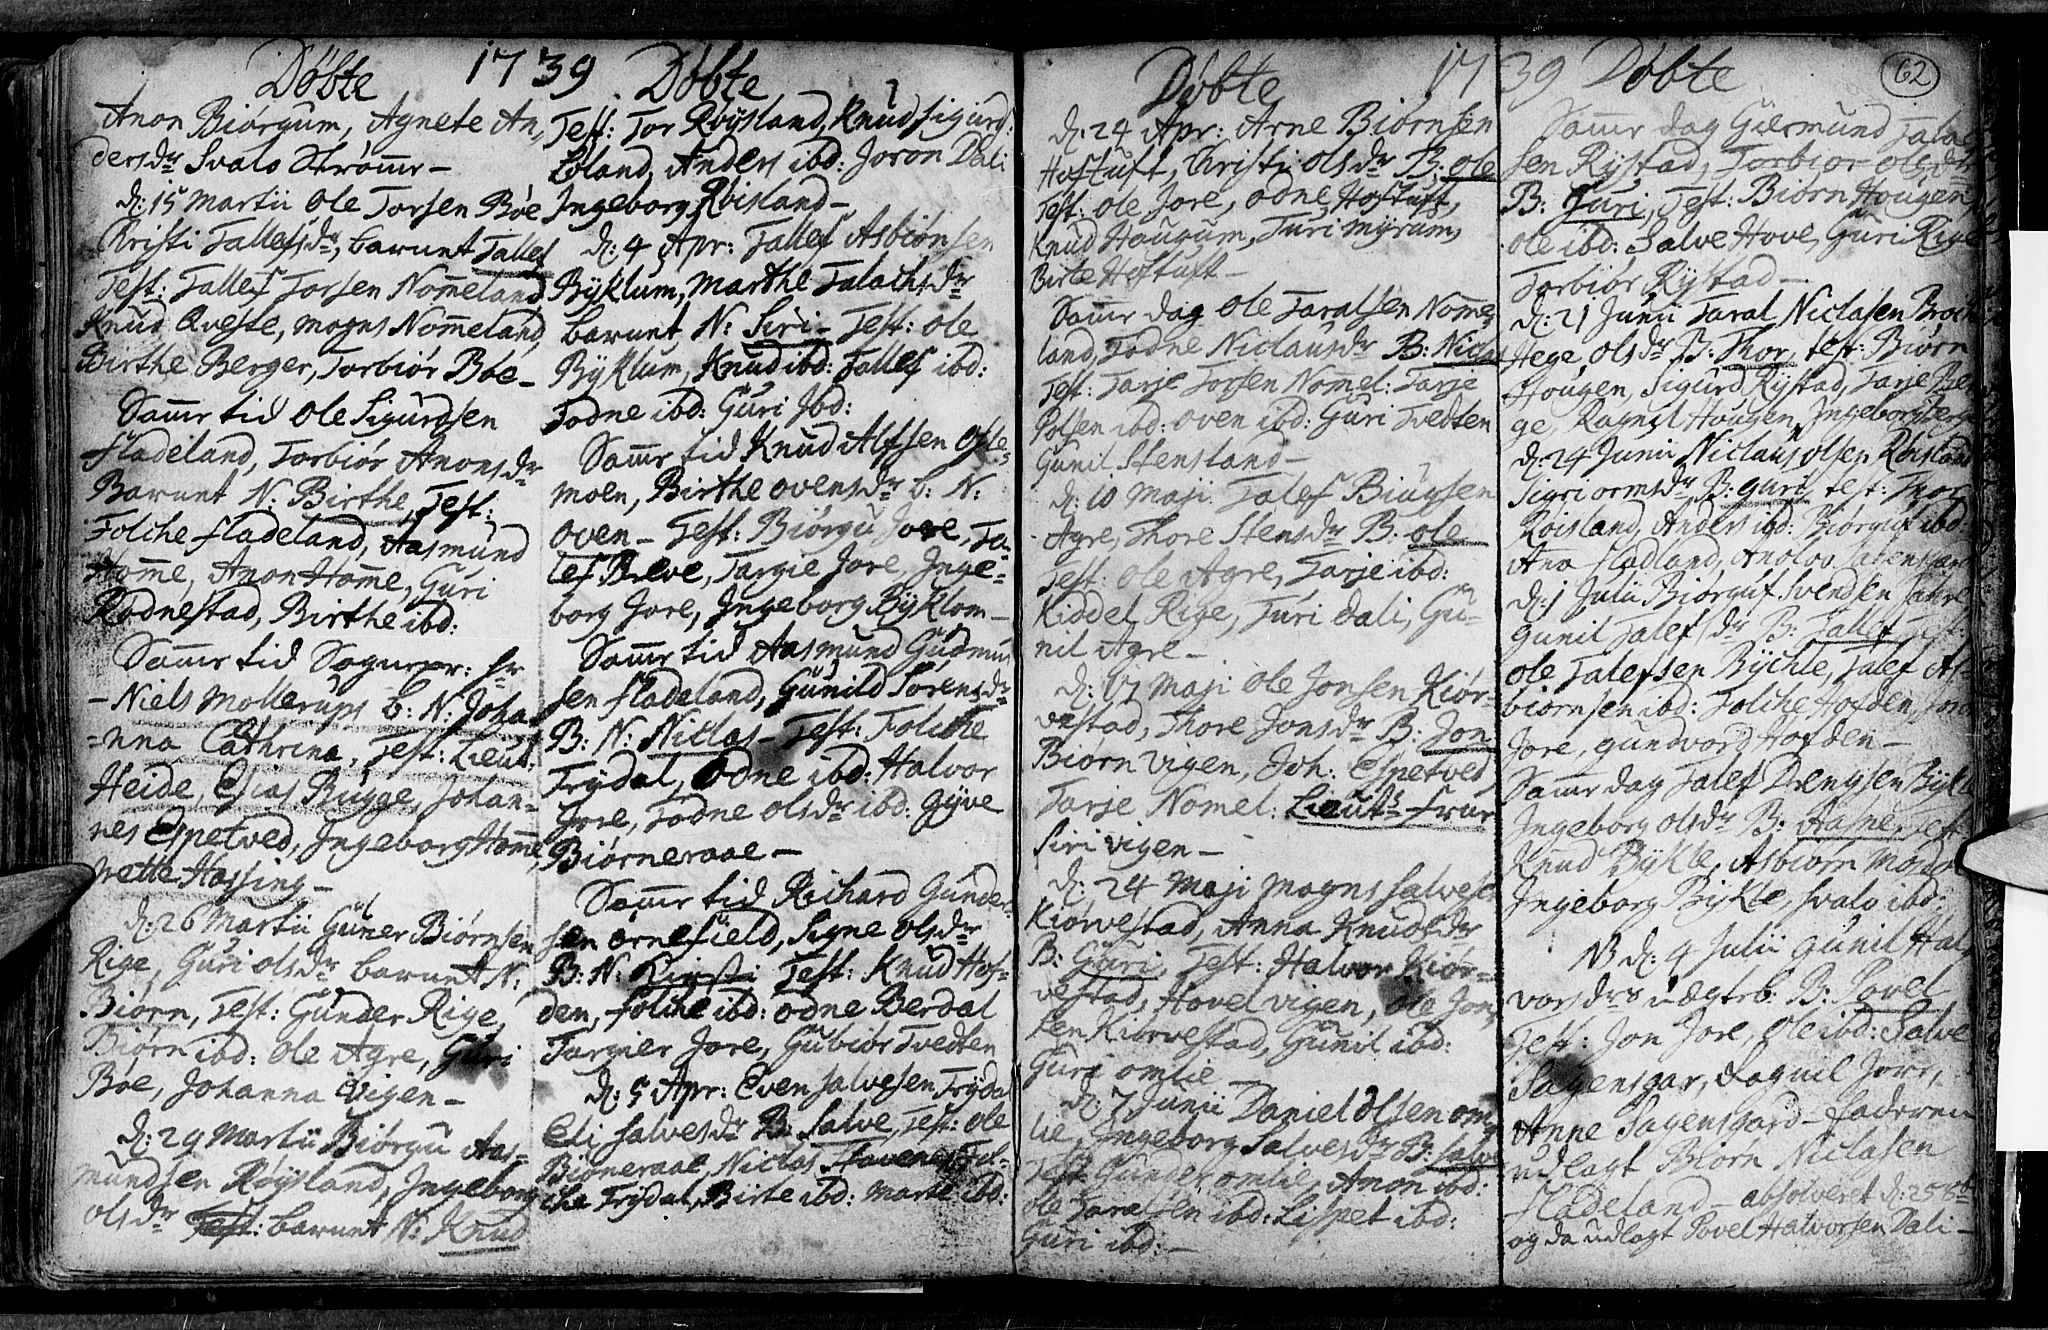 1739
Døbte
Anon Biørgum, Agnete An,
dersdr Svalo Strømr –
d: 15 Martii Ole Torsen Bøe
Kristi Tallefsdr, barnet Tallef
Test: Tallef Torsen Nom̄eland
Knud Qveste, Mogns Nom̄eland,
Birthe Berger, Torbiør Bøe –
Sam̄r tid Ole Sigurdsen
Fladeland, Torbiør Anonsdr
Barnet N: Birthe, Test:
Folche Fladeland, Aasmund
Hom̄e, Anon Hom̄e, Guri
Rodnestad, Birthe ibd:
Sam̄r tid Sognepr: Hr
– Niels Mollerups b: N: Joha
=nna Cathrina, Test: Lieut:
Heide, Elias Bugge, Johan=
nes Espetved, Ingeborg Hom̄e,
Grette Hassing –
d: 26 Martii Guner Biørnsen
Rige, Guri olsdr barnet N:
Biørn, Test: Gunder Rige,
Biørn ibd: Ole Agre, Guri
Bøe, Johanna Vigen –
d: 29 Martii Biørgu Aas=
mundsen Røysland, Ingeborg
olsdr Test: barnet N: Knud
Døbte
Test: Tor Røysland, Knud Sigurd:
Løland, Anders ibd: Joron Dali
Ingeborg Røisland –
d: 4 Apr: Tallef Asbiørnsen
Byklum, Marthe Talachsdr
barnet N: Siri – Test: Ole
Byklum, Knud ibd: Tallef ibd:
Todne ibd: Guri Ibd:
Sam̄r tid Knud Alfsen Ose=
moen, Birthe ovensdr b: N:
Oven – Test: Biørgu Jore, Ta=
lef Breve, Targie Jore, Inge=
borg Jore, Ingeborg Byklom –
Sam̄r tid Aasmund Gudmun
sen Fladeland, Gunild Sorensdr
B: N: Niclas – Test: Folche
Trydal, Odne ibd: Halvor
Jore, Todne olsdr ibd: Gyve
Biørneraae –
Sam̄r tid Richard Gunder=
sen Ørnefield, Signe olsdr
B: N: Kirsti Test: Knud Hof=
den, Folche ibd: Odne Berdal
Targier Jore, Gubiør Tvedten
d: 5 Apr: Even Salvesen Trydal
Eli Salvesdr B: Salve, Test: Ole
Biørneraae, Niclas Stavenes, Fol=
che Trydal, Birte ibd: Marte ibd:
1739
62
Døbte
d: 24 Apr: Arne Biørnsen
Hoftuft, Christi olsdr B: Ole
Test: Ole Jore, Odne Hoftuft,
Knud Haugum, Turi Myrum,
Birte Hoftuft –
Sam̄r dag Ole Taralsen Nom̄e,
land, Todne Niclausdr B: Nicla
Test: Tarje Torsen Nom̄el: Tarje
Polsen ibd: Oven ibd: Guri Tvedten
Gunil Stensland –
d: 10 Maji Talef Biugsen
Agre, Thore Stensdr B: Ole
Test: Ole Agre, Tarje ibd:
Kiddel Rige, Turi Dali, Gu=
nil Agre –
d: 17 Maji Ole Jonsen Kiør=
vestad, Thore Jonsdr B: Jon
Biørn Vigen, Joh: Espetved,
Tarje Nomel: Lieuts Frue
Siri Vigen –
d: 24 Maji Mogns Salvesen
Kiørvestad, Anna Knudsdr
B: Guri, Test: Halvor Kiør=
vestad, Hovel Vigen, Ole Jon,
sen Kiørvestad, Gunil ibd:
Guri Omlie
d: 7 Junii Daniel Olsen Om,
lie, Ingeborg Salvesdr B: Salve
Test Gunder Omlie, Anon ibd:
Ole Taralsen ibd: Lispet ibd:
Guri ibd: –
Døbte
Sam̄r dag Giermund Talve
sen Rystad, Torbiør olsdr
B: Guri, Test: Biørn Hougen,
Ole ibd: Salve Hove, Guri Rige
Torbiør Rystad –
d: 21 Junii Taral Niclasen Brock
Hege, olsdr B: Thor, test: Biørn
Hougen, Sigurd Rystad, Tarje Ber
ge, Ragnil Hougen, Ingeborg Berge
d: 24 Junii Niclaus Olsen Røisland
Sigri ormsdr B: Guri, test: Thor
Røisland, Anders ibd: Biørguf ibd:
Ana Fladland, Anolov
d: 1 Julii Biørguf Svendsen
Gunil Talefsdr B: Tallef Test:
Ole Talefsen Bychle, Talef As=
biørnsen ibd: Folche Hofden,
Jore, Gundvord Hofden –
Sam̄r dag Talef Drengsen Bykl
Ingeborg olsdr B: Aasne, Test
Knud Bykle, Asbiørn
Ingeborg Bykle, Svalo ibd:
NB d: 4 Julii Gunil Hal,
vorsdrs uægteb: B: Povel
Test: Jon Jore, Ole ibd: Salve
Sagensgar, Ragnil Jore,
Anne Sagensgard – Faderen
udlagt Biørn Niclasen
Fladeland – absolveret d: 25 8br
og da udlagt Povel Halvorsen Dali –